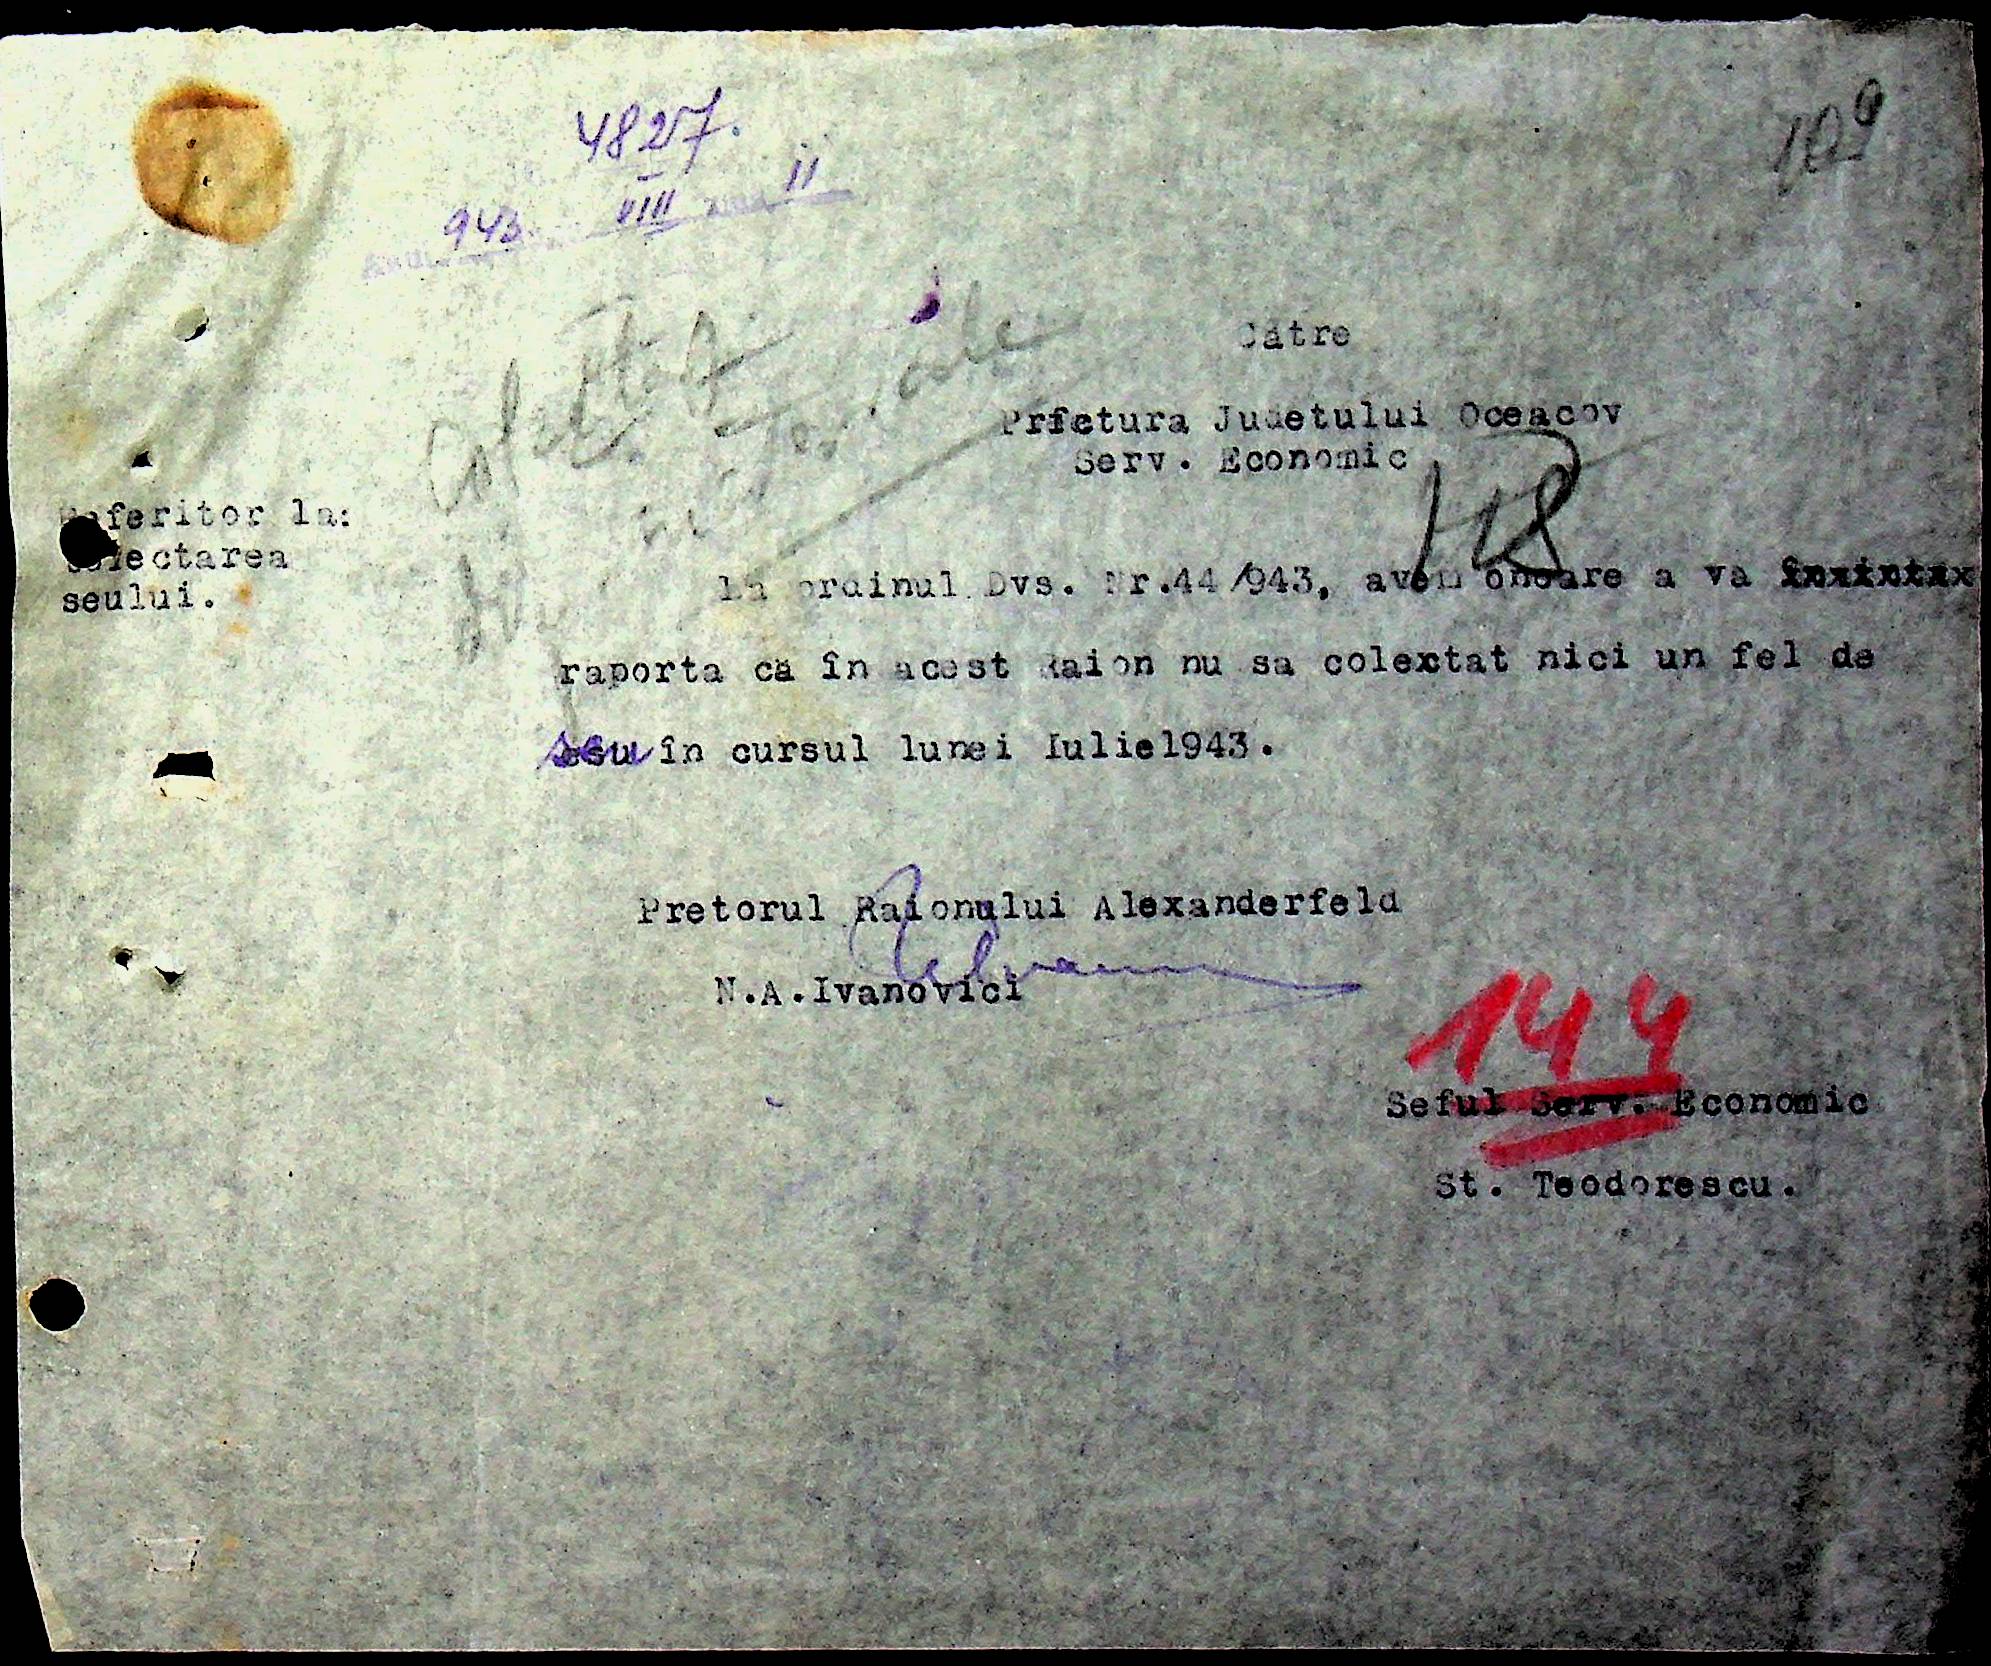 4827.
109
943 VIII 11
Către
Prfctura Judetului Oceacov
Serv. Economic
Referitor la:
colectarea
seului.
La ordinul Dvs. Nr.44/943, avem onoare a va
raporta că în acest Raion nu sa colextat nici un fel de
seu în cursul lunei Iulie1943.
Pretorul Raionului Alexanderfeld
N.A.Ivanovici
144
Seful Serv. Economic
St. Teodorescu.